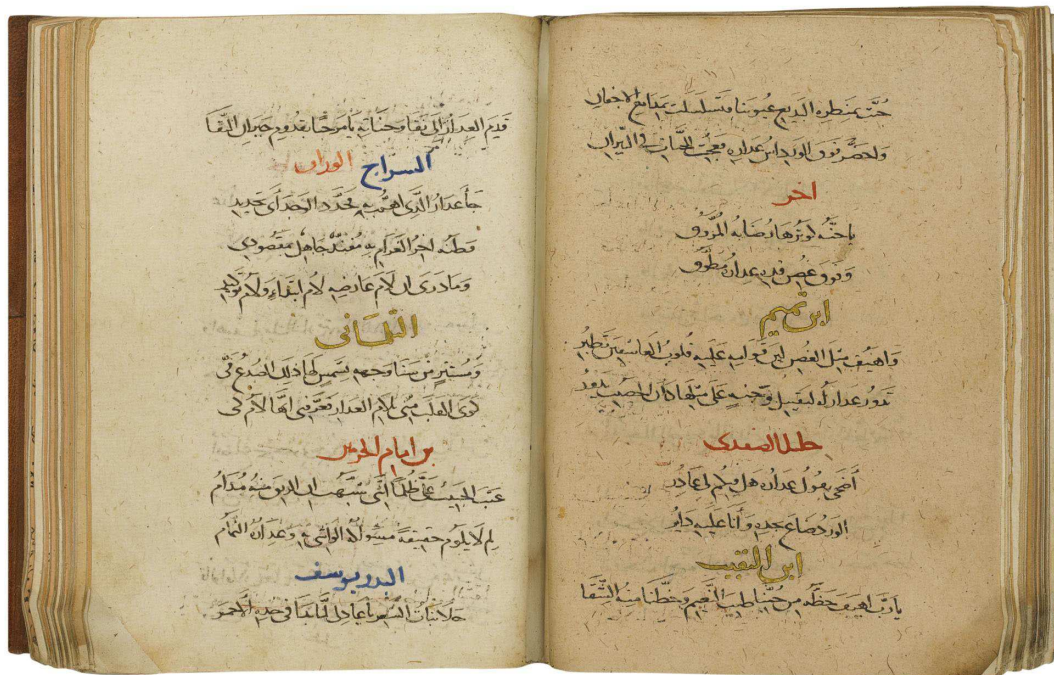 حث بمنظره البديع عيوننا فتسلسلت بمدامع الاجفان
واخضر فوق الورد اس عذاره فعجبت للجنات في النيران
اخر
ياجنه كوثرها رضابه المروق
وفوق غصن قده عذاره مطوق
ابن تميم
واهيف مثل الغصن لين قوامه عليه قلوب العاشقين تطير
تدور عذاراه لتقبيل وجنه على مثلها كان الخصيب يدور
خليل الصفدي
أضحى يقول عذاره هل فيكم لي عاذر
الورد ضاع بخده وأنا عليه داير
ابن النقيب
يارب اهيف حظه من حسنه طيب النعيم وحظنا منه الشقا
قدم العذار الى نقا وجناته يا مرحبا بقدوم جيران النقا
السراج الوراق
جا عذار الذي اهيم به فجدد الوجد أي تجديد
وظنه اخر الغرام به مفند جاهل بمقصودي
وما درى ان لام عارضه لام ابتداء ولام توكيد
التلمساني
ومستتر من سنا وجهه بشمس لها ذلك الصدغ في
كوى القلب مني بلام العذار فعرفني انها لام كي
بن امام الحرمين
عتب الحبيب علي ظلما انني شبهت ان الريق منه مدام
لم لا يلوم حقيقة مسواكه الواشي به وعذاره النمام
البدر يوسف
حلا نبات الشعر يا عاذلي لما بدا في خده الاحمر